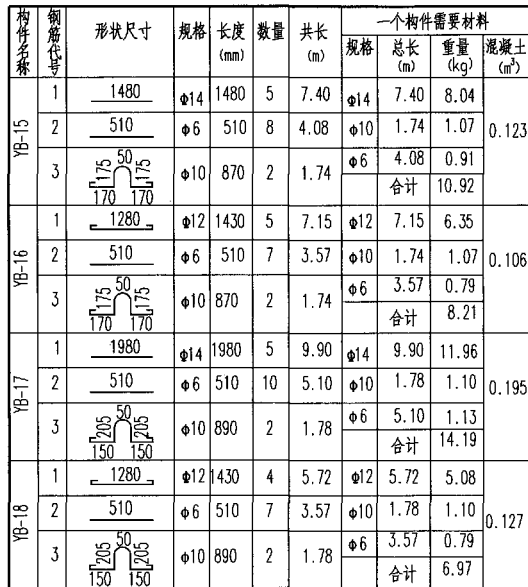 构件名称 钢筋代号 形状尺寸 规格 长度(mm) 数量 共长(m) 一个构件需要材料
规格 总长(m) 重量(kg) 混凝土(m³)
YB-15
1 1480 Φ14 1480 5 7.40 Φ14 7.40 8.04
2 510 Φ6 510 8 4.08 Φ10 1.74 1.07 0.123
3 175 50 175 170 170 Φ10 870 2 1.74 Φ6 4.08 0.91
合计 10.92
YB-16
1 1280 Φ12 1430 5 7.15 Φ12 7.15 6.35
2 510 Φ6 510 7 3.57 Φ10 1.74 1.07 0.106
3 175 50 175 170 170 Φ10 870 2 1.74 Φ6 3.57 0.79
合计 8.21
YB-17
1 1980 Φ14 1980 5 9.90 Φ14 9.90 11.96
2 510 Φ6 510 10 5.10 Φ10 1.78 1.10 0.195
3 205 50 205 150 150 Φ10 890 2 1.78 Φ6 5.10 1.13
合计 14.19
YB-18
1 1280 Φ12 1430 4 5.72 Φ12 5.72 5.08
2 510 Φ6 510 7 3.57 Φ10 1.78 1.10 0.127
3 205 50 205 150 150 Φ10 890 2 1.78 Φ6 3.57 0.79
合计 6.97